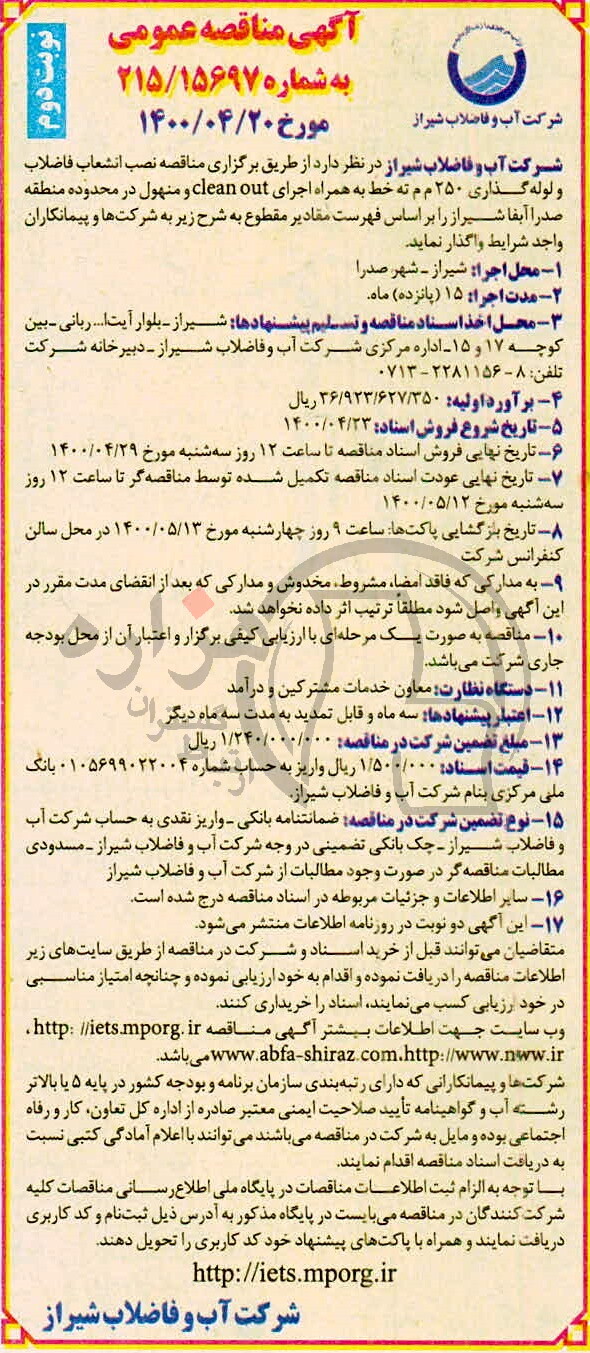 آگهی مناقصه عمومی
به شماره ۲۱۵/۱۵۶۹۷
مورخ ۱۴۰۰/۰۴/۲۰
نوبت دوم
شرکت آب و فاضلاب شیراز
شرکت آب و فاضلاب شیراز در نظر دارد از طریق برگزاری مناقصه نصب انشعاب فاضلاب
و لوله‌گذاری ۲۵۰ م م ته خط به همراه اجرای clean out و منهول در محدوده منطقه
صدرا آبفا شیراز را بر اساس فهرست مقادیر مقطوع به شرح زیر به شرکت‌ها و پیمانکاران
واجد شرایط واگذار نماید.
۱- محل اجرا: شیراز - شهر صدرا
۲- مدت اجرا: ۱۵ (پانزده) ماه.
۳- محل اخذ اسناد مناقصه و تسلیم پیشنهادها: شیراز - بلوار آیت‌ا... ربانی - بین
کوچه ۱۷ و ۱۵- اداره مرکزی شرکت آب و فاضلاب شیراز - دبیرخانه شرکت
تلفن: ۸ - ۲۲۸۱۱۵۶ - ۰۷۱۳
۴- برآورد اولیه: ۳۶/۹۲۳/۶۲۷/۳۵۰ ریال
۵- تاریخ شروع فروش اسناد: ۱۴۰۰/۰۴/۲۳
۶- تاریخ نهایی فروش اسناد مناقصه تا ساعت ۱۲ روز سه‌شنبه مورخ ۱۴۰۰/۰۴/۲۹
۷- تاریخ نهایی عودت اسناد مناقصه تکمیل شده توسط مناقصه‌گر تا ساعت ۱۲ روز
سه‌شنبه مورخ ۱۴۰۰/۰۵/۱۲
۸- تاریخ بازگشایی پاکت‌ها: ساعت ۹ روز چهارشنبه مورخ ۱۴۰۰/۰۵/۱۳ در محل سالن
کنفرانس شرکت
۹- به مدارکی که فاقد امضا، مشروط، مخدوش و مدارکی که بعد از انقضای مدت مقرر در
این آگهی واصل شود مطلقاً ترتیب اثر داده نخواهد شد.
۱۰- مناقصه به صورت یک مرحله‌ای با ارزیابی کیفی برگزار و اعتبار آن از محل بودجه
جاری شرکت می‌باشد.
۱۱- دستگاه نظارت: معاون خدمات مشترکین و درآمد
۱۲- اعتبار پیشنهادها: سه ماه و قابل تمدید به مدت سه ماه دیگر
۱۳- مبلغ تضمین شرکت در مناقصه: ۱/۲۴۰/۰۰۰/۰۰۰ ریال
۱۴- قیمت اسناد: ۱/۵۰۰/۰۰۰ ریال واریز به حساب شماره ۰۱۰۵۶۹۹۰۲۲۰۰۴ بانک
ملی مرکزی بنام شرکت آب و فاضلاب شیراز.
۱۵- نوع تضمین شرکت در مناقصه: ضمانتنامه بانکی - واریز نقدی به حساب شرکت آب
و فاضلاب شیراز - چک بانکی تضمینی در وجه شرکت آب و فاضلاب شیراز - مسدودی
مطالبات مناقصه‌گر در صورت وجود مطالبات از شرکت آب و فاضلاب شیراز
۱۶- سایر اطلاعات و جزئیات مربوطه در اسناد مناقصه درج شده است.
۱۷- این آگهی دو نوبت در روزنامه اطلاعات منتشر می‌شود.
متقاضیان می‌توانند قبل از خرید اسناد و شرکت در مناقصه از طریق سایت‌های زیر
اطلاعات مناقصه را دریافت نموده و اقدام به خود ارزیابی نموده و چنانچه امتیاز مناسبی
در خود ارزیابی کسب می‌نمایند، اسناد را خریداری کنند.
وب سایت جهت اطلاعات بیشتر آگهی مناقصه http: //iets.mporg.ir ،
www.abfa-shiraz.com،http://www.nww.ir می‌باشد.
شرکت‌ها و پیمانکارانی که دارای رتبه‌بندی سازمان برنامه و بودجه کشور در پایه ۵ یا بالاتر
رشته آب و گواهینامه تأیید صلاحیت ایمنی معتبر صادره از اداره کل تعاون، کار و رفاه
اجتماعی بوده و مایل به شرکت در مناقصه می‌باشند می‌توانند با اعلام آمادگی کتبی نسبت
به دریافت اسناد مناقصه اقدام نمایند.
با توجه به الزام ثبت اطلاعات مناقصات در پایگاه ملی اطلاع‌رسانی مناقصات کلیه
شرکت‌کنندگان در مناقصه می‌بایست در پایگاه مذکور به آدرس ذیل ثبت‌نام و کد کاربری
دریافت نمایند و همراه با پاکت‌های پیشنهاد خود کد کاربری را تحویل دهند.
http://iets.mporg.ir
شرکت آب و فاضلاب شیراز
هزاره